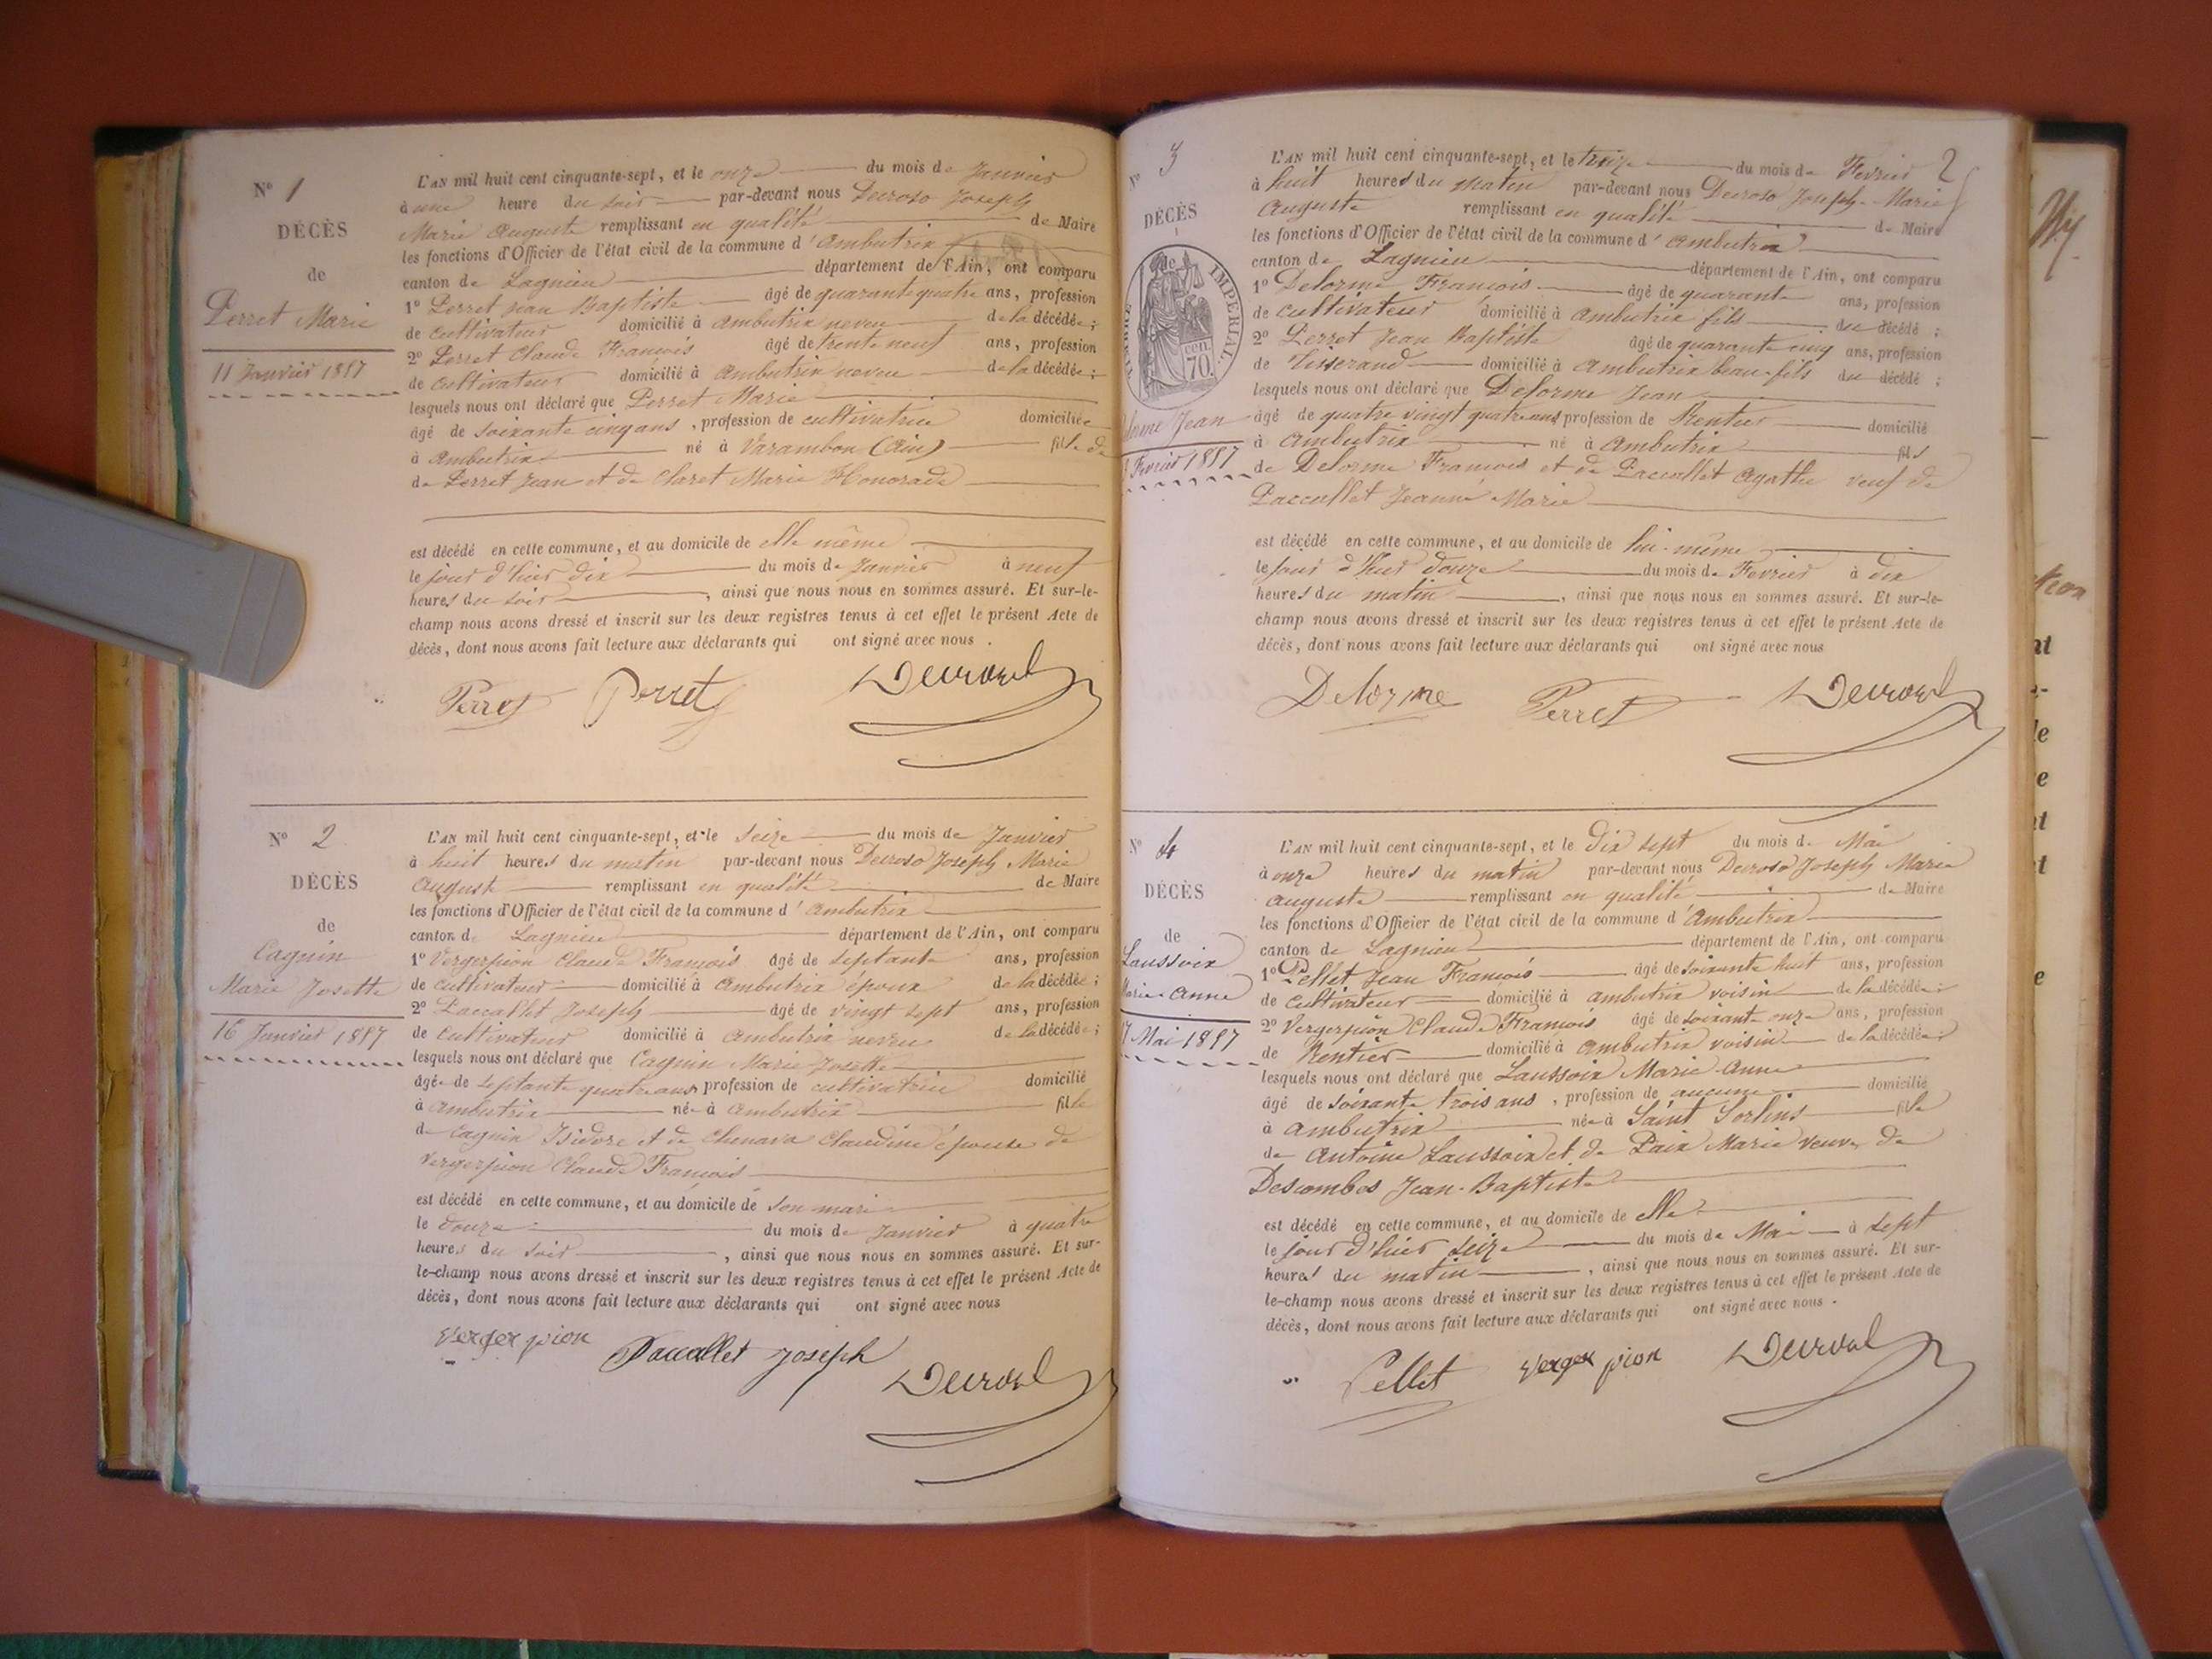 N° 1
DÉCÈS
de
Perret Marie
11 Janvier 1857
L'AN mil huit cent cinquante-sept, et le onze du mois de Janvier
à une heure du soir par-devant nous Decroso Joseph
Marie Auguste remplissant en qualité de Maire
les fonctions d'Officier de l'état civil de la commune d'Ambutrix
canton de Lagnieu département de l'Ain, ont comparu
1° Perret Jean Baptiste âgé de quarante quatre ans, profession
de cultivateur domicilié à Ambutrix neveu de la décédée ;
2° Perret Claude François âgé de trente neuf ans, profession
de cultivateur domicilié à Ambutrix neveu de la décédée ;
lesquels nous ont déclaré que Perret Marie
âgé de soixante cinq ans, profession de cultivatrice domiciliée
à Ambutrix né à Varambon (Ain) fille de
de Perret Jean et de Claret Marie Honorade
est décédé en cette commune, et au domicile de elle même
le jour d'hier dix du mois de Janvier à neuf
heures du soir, ainsi que nous nous en sommes assuré. Et sur-le-
champ nous avons dressé et inscrit sur les deux registres tenus à cet effet le présent Acte de
décès, dont nous avons fait lecture aux déclarants qui ont signé avec nous.
Perret Perret Decroso
N° 2
DÉCÈS
de
Cagnin
Marie Josette
16 Janvier 1857
L'AN mil huit cent cinquante-sept, et le seize du mois de Janvier
à huit heures du matin par-devant nous Decroso Joseph Marie
Auguste remplissant en qualité de Maire
les fonctions d'Officier de l'état civil de la commune d'Ambutrix
canton de Lagnieu département de l'Ain, ont comparu
1° Vergerpion Claude François âgé de septante ans, profession
de cultivateur domicilié à Ambutrix époux de la décédée ;
2° Paccallet Joseph âgé de vingt sept ans, profession
de cultivateur domicilié à Ambutrix neveu de la décédée ;
lesquels nous ont déclaré que Cagnin Marie Josette
âgée de septante quatre ans profession de cultivatrice domicilié
à Ambutrix née à Ambutrix fille
de Cagnin Isidore et de Chenava Claudine épouse de
Vergerpion Claude François
est décédé en cette commune, et au domicile de son mari
le douze du mois de Janvier à quatre
heures du soir, ainsi que nous nous en sommes assuré. Et sur-
le-champ nous avons dressé et inscrit sur les deux registres tenus à cet effet le présent Acte de
décès, dont nous avons fait lecture aux déclarants qui ont signé avec nous
Vergerpion Paccallet Joseph Decroso
2
N° 3
DÉCÈS
de
TIMBRE IMPERIAL
70 cen.
Delorme Jean
Février 1857
L'AN mil huit cent cinquante-sept, et le treize du mois de Février
à huit heures du matin par-devant nous Decroso Joseph-Marie
Auguste remplissant en qualité de Maire
les fonctions d'Officier de l'état civil de la commune d'Ambutrix
canton de Lagnieu département de l'Ain, ont comparu
1° Delorme François âgé de quarante ans, profession
de cultivateur domicilié à Ambutrix fils du décédé ;
2° Perret Jean Baptiste âgé de quarante cinq ans, profession
de Tisserand domicilié à Ambutrix beau-fils du décédé ;
lesquels nous ont déclaré que Delorme Jean
âgé de quatre vingt quatre ans profession de Rentier domicilié
à Ambutrix né à Ambutrix fils
de Delorme François et de Paccallet Agathe veuf de
Paccallet Jeanne Marie
est décédé en cette commune, et au domicile de lui-même
le jour d'hier douze du mois de Février à dix
heures du matin, ainsi que nous nous en sommes assuré. Et sur-le-
champ nous avons dressé et inscrit sur les deux registres tenus à cet effet le présent Acte de
décès, dont nous avons fait lecture aux déclarants qui ont signé avec nous
Delorme Perret Decroso
N° 4
DÉCÈS
de
Laussoix
Marie-Anne
17 Mai 1857
L'AN mil huit cent cinquante-sept, et le dix sept du mois de Mai
à onze heures du matin par-devant nous Decroso Joseph Marie
Auguste remplissant en qualité de Maire
les fonctions d'Officier de l'état civil de la commune d'Ambutrix
canton de Lagnieu département de l'Ain, ont comparu
1° Pellet Jean François âgé de soixante huit ans, profession
de cultivateur domicilié à Ambutrix voisin de la décédée ;
2° Vergerpion Claude François âgé de soixante onze ans, profession
de Rentier domicilié à Ambutrix voisin de la décédée ;
lesquels nous ont déclaré que Laussoix Marie-Anne
âgé de soixante trois ans, profession de aucune domicilié
à Ambutrix née à Saint Sorlins fille
de Antoine Laussoix et de Paix Marie veuve de
Descombes Jean-Baptiste
est décédé en cette commune, et au domicile de elle
le jour d'hier seize du mois de Mai à sept
heures du matin, ainsi que nous nous en sommes assuré. Et sur-
le-champ nous avons dressé et inscrit sur les deux registres tenus à cet effet le présent Acte de
décès, dont nous avons fait lecture aux déclarants qui ont signé avec nous.
Pellet Vergerpion Decroso